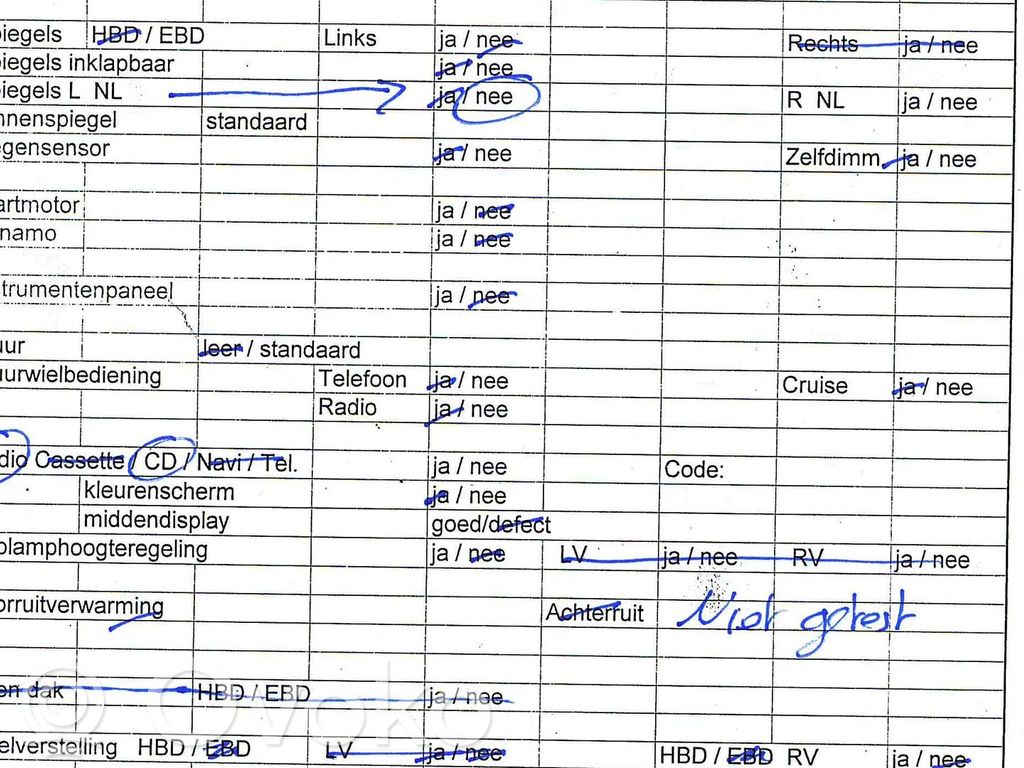 iegels HBD / EBD Links ja / nee Rechts ja / nee
iegels inklapbaar ja / nee
iegels L NL ja / nee R NL ja / nee
nnenspiegel standaard
gensensor ja / nee Zelfdimm. ja / nee
artmotor ja / nee
namo ja / nee
trumentenpaneel ja / nee
uur leer / standaard
uurwielbediening Telefoon ja / nee Cruise ja / nee
Radio ja / nee
dio Cassette / CD / Navi / Tel. ja / nee Code:
kleurenscherm ja / nee
middendisplay goed/defect
plamphoogteregeling ja / nee LV ja / nee RV ja / nee
orruitverwarming Achterruit Niet getest
en dak HBD / EBD ja / nee
© Ovoko
elverstelling HBD / EBD LV ja / nee HBD / EBD RV ja / nee